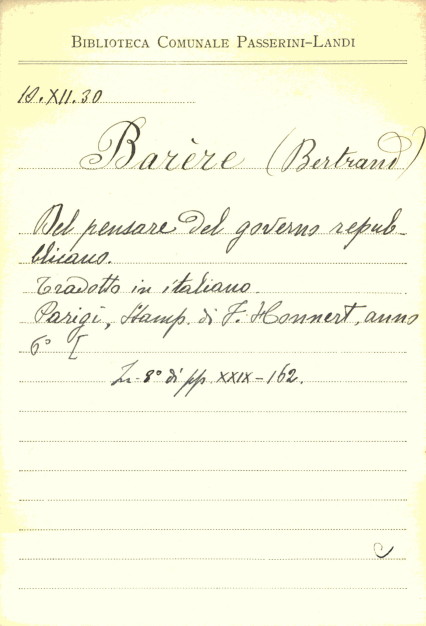 BIBLIOTECA COMUNALE PASSERINI-LANDI
10.XII.30
Barère (Bertrand)
Del pensare del governo repub-
blicano.
Tradotto in italiano.
Parigi, Stamp. di F. Honnert, anno
6° [
In-8° di pp. XXIX-162.